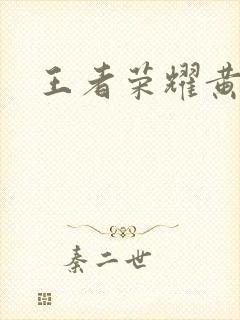 王者荣耀黄
秦二世